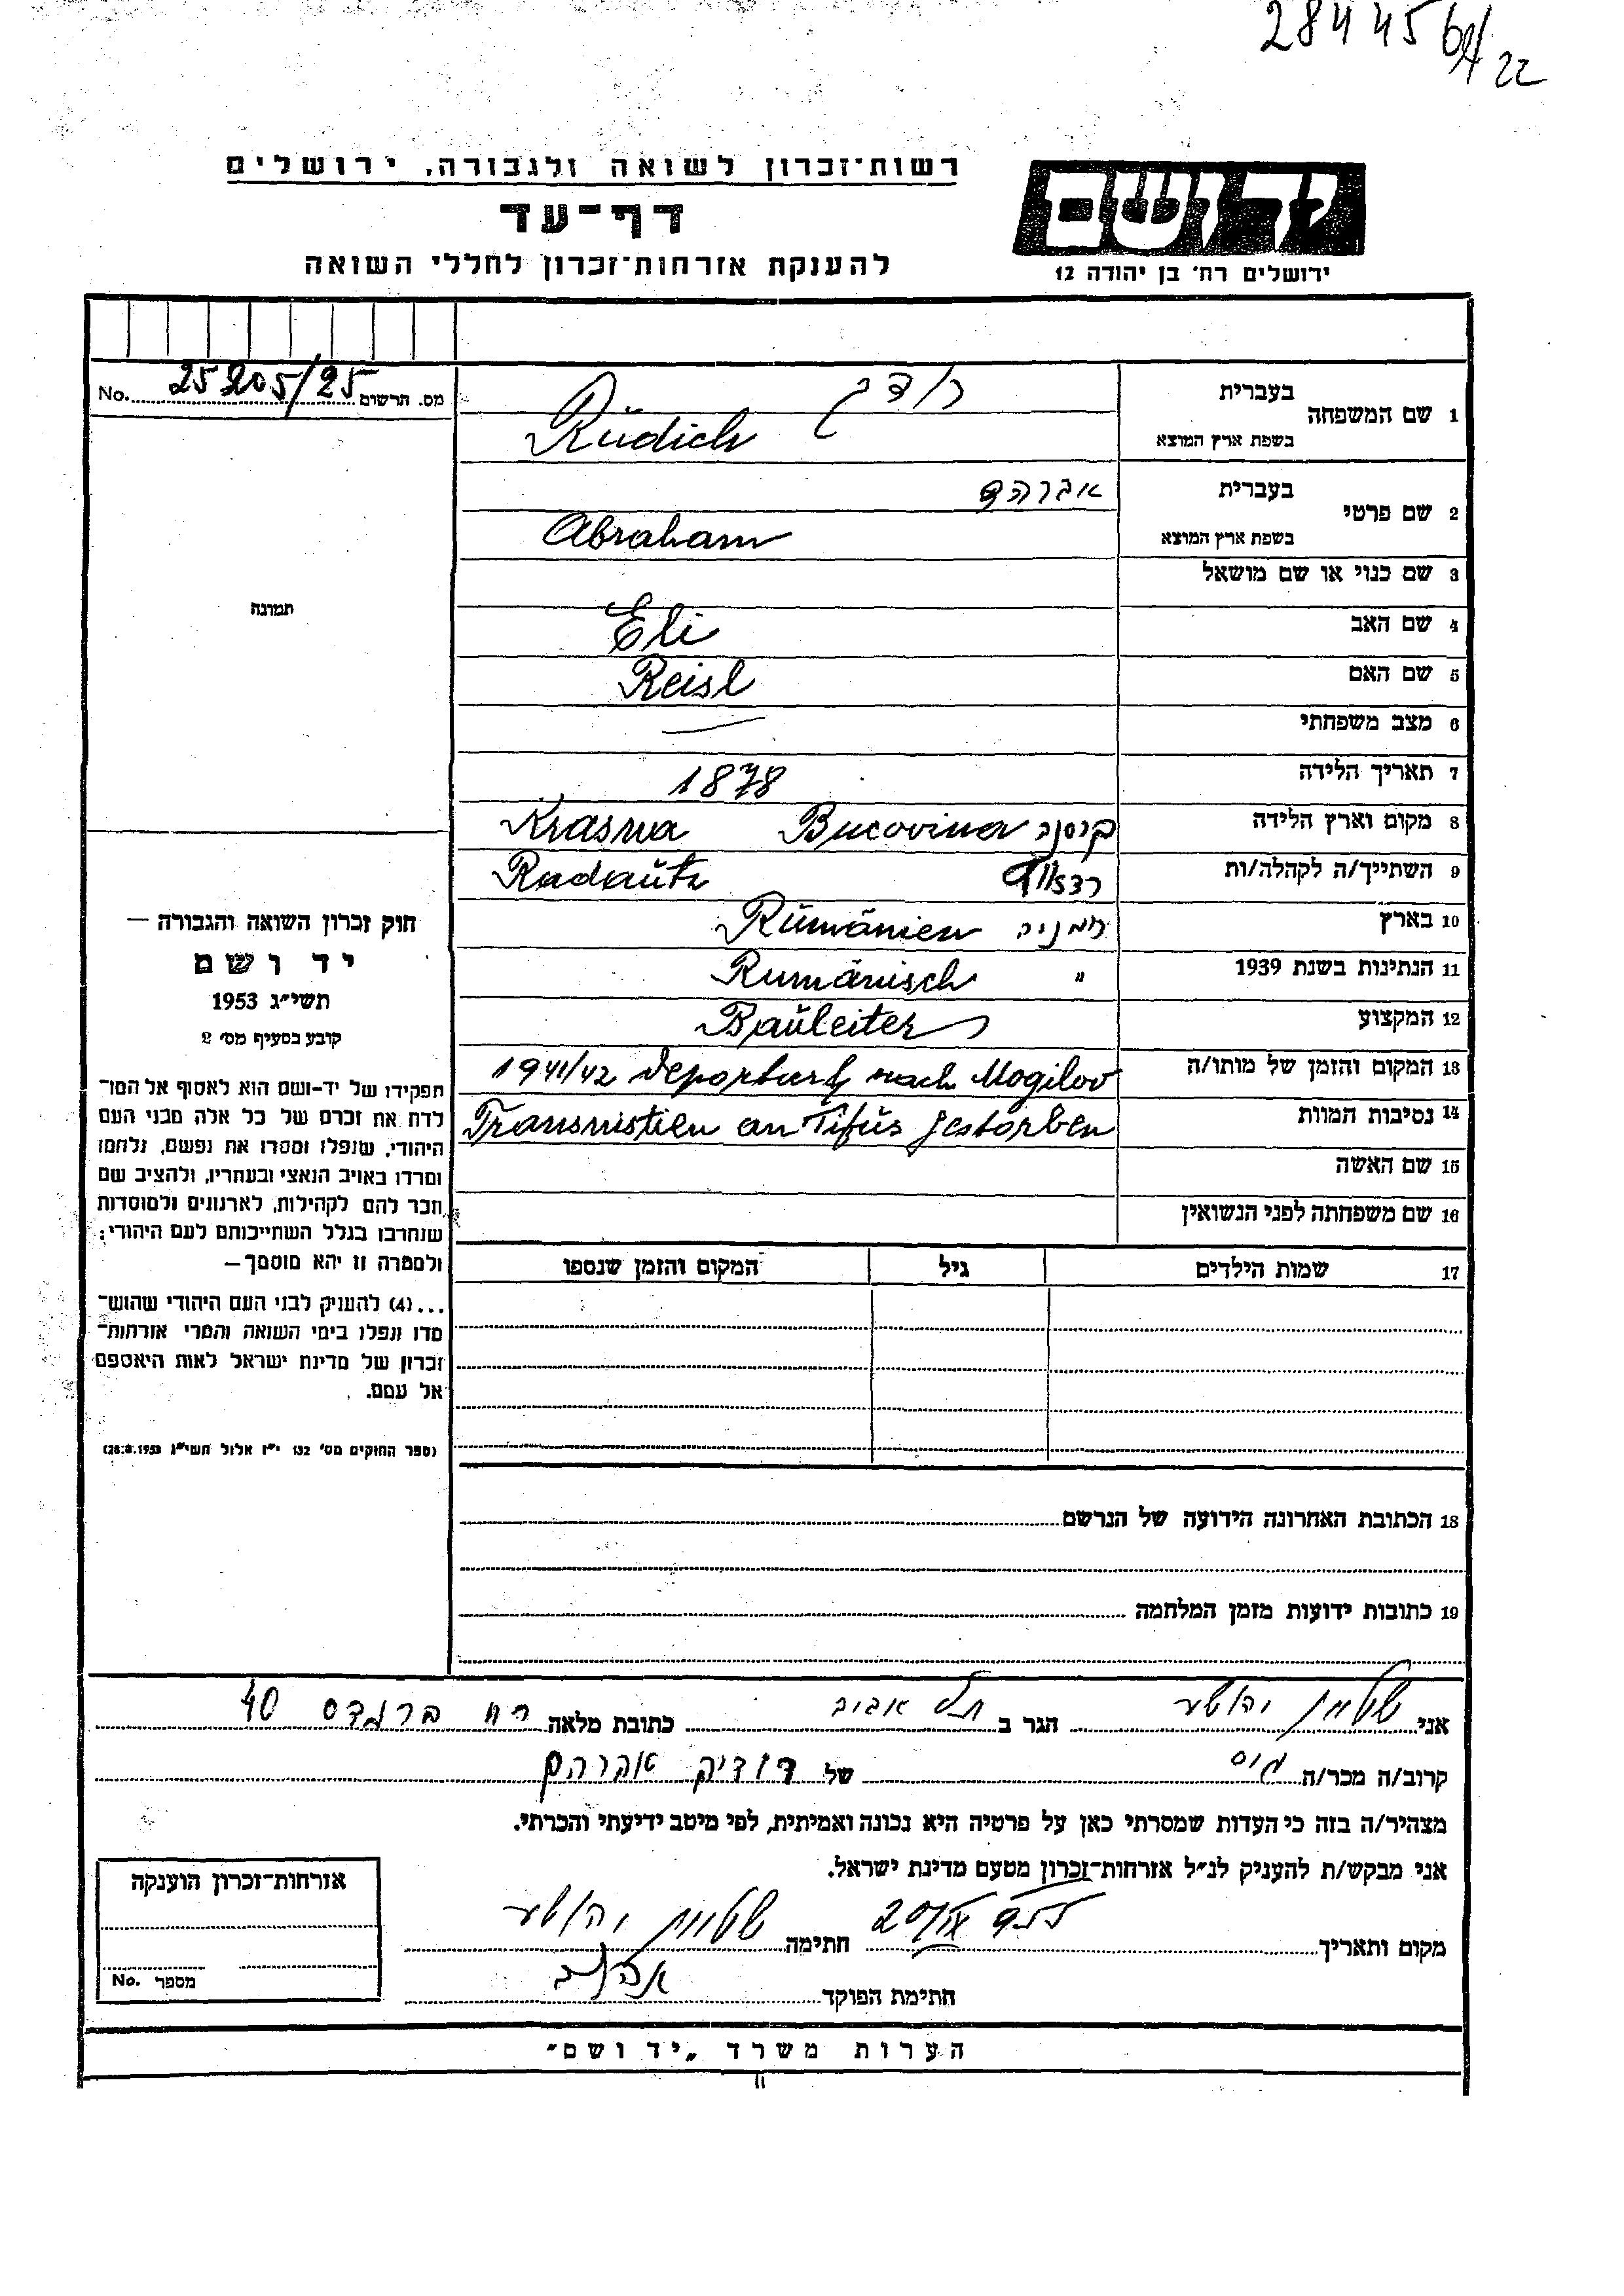 2844561/22
רשות־זכרון לשואה ולגבורה, ירושלים
דף־עד
להענקת אזרחות־זכרון לחללי השואה
ידושם
ירושלים רח׳ בן יהודה 12
No. 25205/25 מס. הרשום
1 שם המשפחה
בעברית רודך
בשפת ארץ המוצא Rüdich
2 שם פרטי
בעברית אברהם
בשפת ארץ המוצא Abraham
3 שם כנוי או שם מושאל
4 שם האב Eli
5 שם האם Reisl
6 מצב משפחתי —
7 תאריך הלידה 1878
8 מקום וארץ הלידה Krasna Bucovina
9 השתייך/ה לקהלה/ות Radautz
10 בארץ Rümänien רומניה
11 הנתינות בשנת 1939 Rumänisch "
12 המקצוע Bauleiter
13 המקום והזמן של מותו/ה 1941/42 deportiert nach Mogilov
14 נסיבות המוות Transnistien an Tifus gestorben
15 שם האשה
16 שם משפחתה לפני הנשואין
17 שמות הילדים גיל המקום והזמן שנספו
18 הכתובת האחרונה הידועה של הנרשם
19 כתובות ידועות מזמן המלחמה
תמונה
חוק זכרון השואה והגבורה —
יד ושם
תשי״ג 1953
קובע בסעיף מס׳ 2
תפקידו של יד-ושם הוא לאסוף אל המו־
לדת את זכרם של כל אלה מבני העם
היהודי, שנפלו ומסרו את נפשם, נלחמו
ומרדו באויב הנאצי ובעוזריו, ולהציב שם
וזכר להם לקהילות, לארגונים ולמוסדות
שנחרבו בגלל השתייכותם לעם היהודי;
ולמטרה זו יהא מוסמך—
...(4) להעניק לבני העם היהודי שהוש־
מדו ונפלו בימי השואה והמרי אזרחות־
זכרון של מדינת ישראל לאות היאספם
אל עמם.
(ספר החוקים מס׳ 132 י״ז אלול תשי״ג 28.8.1953)
אני יהושע הגר ב תל אביב כתובת מלאה רח ברנדס 40
קרוב/ה מכר/ה גיס של רודיק אברהם
מצהיר/ה בזה כי העדות שמסרתי כאן על פרטיה היא נכונה ואמיתית, לפי מיטב ידיעתי והכרתי.
אני מבקש/ת להעניק לנ״ל אזרחות־זכרון מטעם מדינת ישראל.
מקום ותאריך חתימה יהושע
חתימת הפוקד
אזרחות־זכרון הוענקה
No. מספר
הערות משרד „יד ושם״